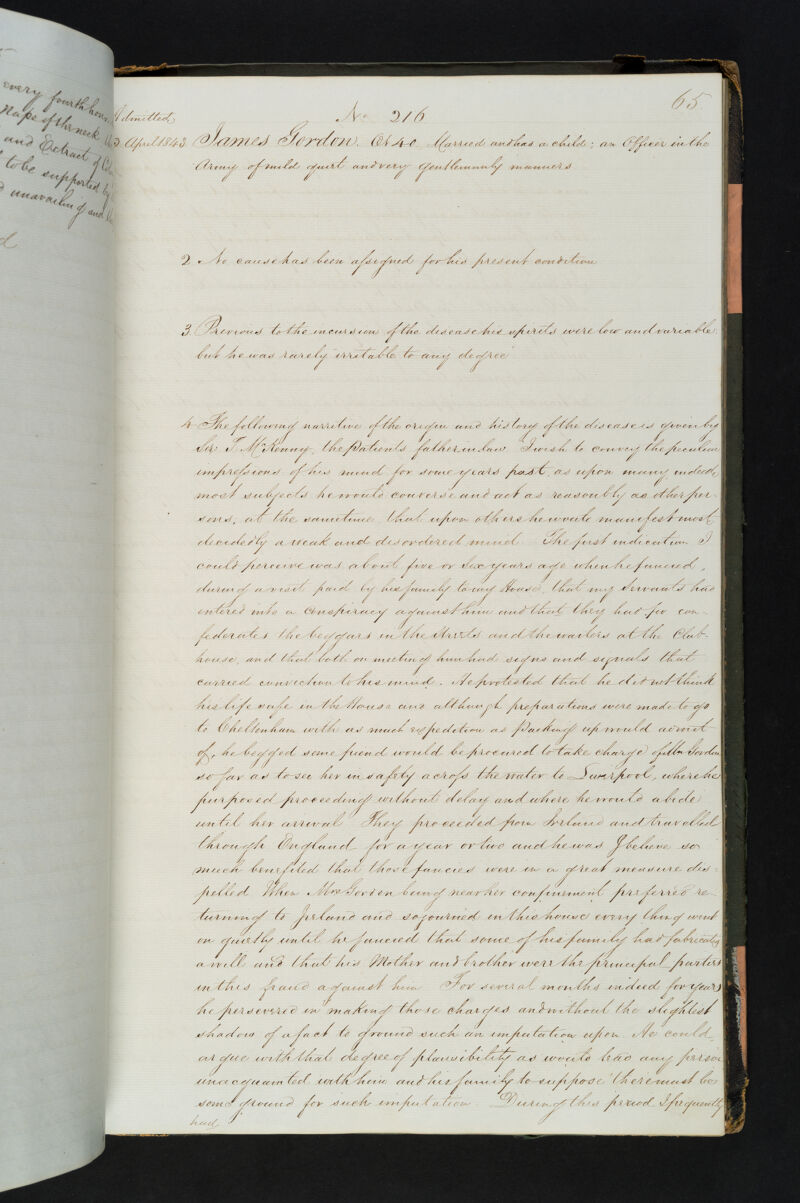 every fourth hour
Nape of the neck
and Extract of
to be supported by
unavailing and
65
No 216
Admitted
April 1843 James Gordon. Æt 40. Married and has a child; an Officer in the
Army of mild quiet and very gentlemanly manners
2 No cause has been assigned for his present condition
3. Previous to the incursion of the disease his spirits were low and variable
but he was rarely irritable to any degree
4 The following narrative of the origin and history of the disease is given by
Sir T McKenny, the Patients father in law I wish to convey the peculiar
impressions of his mind for some years past, as upon many indeed
most subjects he would converse and act as reasonably as other per-
sons, at the sametime that upon others he would manifest most
decidedly a weak and disordered mind The first indication I
could perceive was about five or six years ago when he fancied,
during a visit paid by his family to my House, that my servants had
entered into a conspiracy against him and that they had for con-
federates the beggars in the streets and the waiters at the Club-
house, and that both on meeting him had signs and signals that
carried conviction to his mind. He protested that he did not think
his life safe in the House and although preparations were made to go
to Cheltenham with as much expedition as Packing up would admit
of, he begged some friend would be procured to take charge of Mrs Gordon
so far as to see her in safety across the water to Liverpool, where he
purposed proceeding without delay and where he would abide
until her arrival They proceeded from Ireland and travelled
through England for a year or two and he was I believe so
much benefited that those fancies were in a great measure dis-
pelled When Mrs Gordon being near her confinement preferred re-
turning to Ireland and sojourned in this house every thing went
on quietly until he fancied that some of his family had fabricated
a will and that his Mother and brother were the principal parties
in this fraud against him For several months indeed for years
he persevered in making those charges and without the slightest
shadow of a fact to ground such an imputation upon. He could
argue with that degree of plausibility as would lead any person
unacquainted with him and his family to suppose there must be
some ground for such imputation. During this period I frequently
had